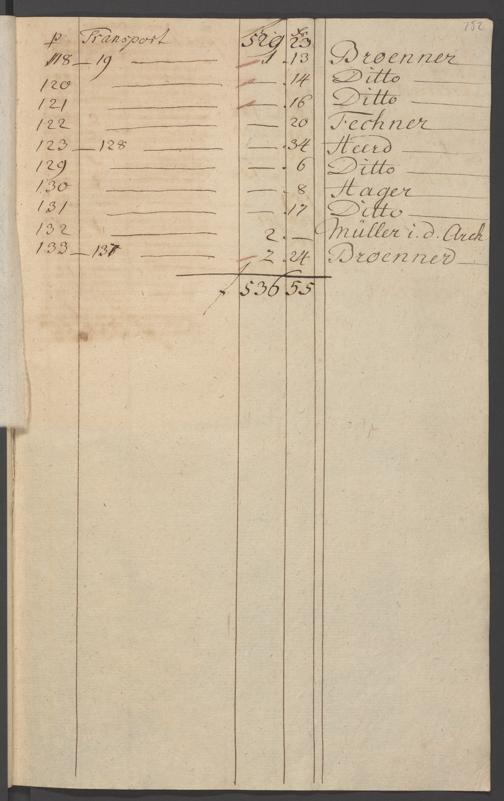 152
p Transport 529 x 23
118 – 19 — 1 . 13 Broenner
120 — . 14 Ditto
121 — — . 16 Ditto
122 — — 20 Fechner
123 – 128 — — . 34 Heerd
129 — — . 6 Ditto
130 — — . 8 Hager
131 — . 17 Ditto
132 — 2 . — Müller i. d. Arch
133 – 137 — 2 . 24 Broenner
f 536 55